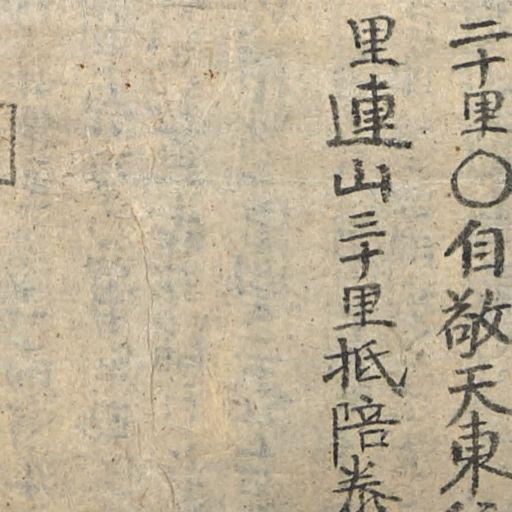 二十里〇自敬天東
里連山三十里抵陪